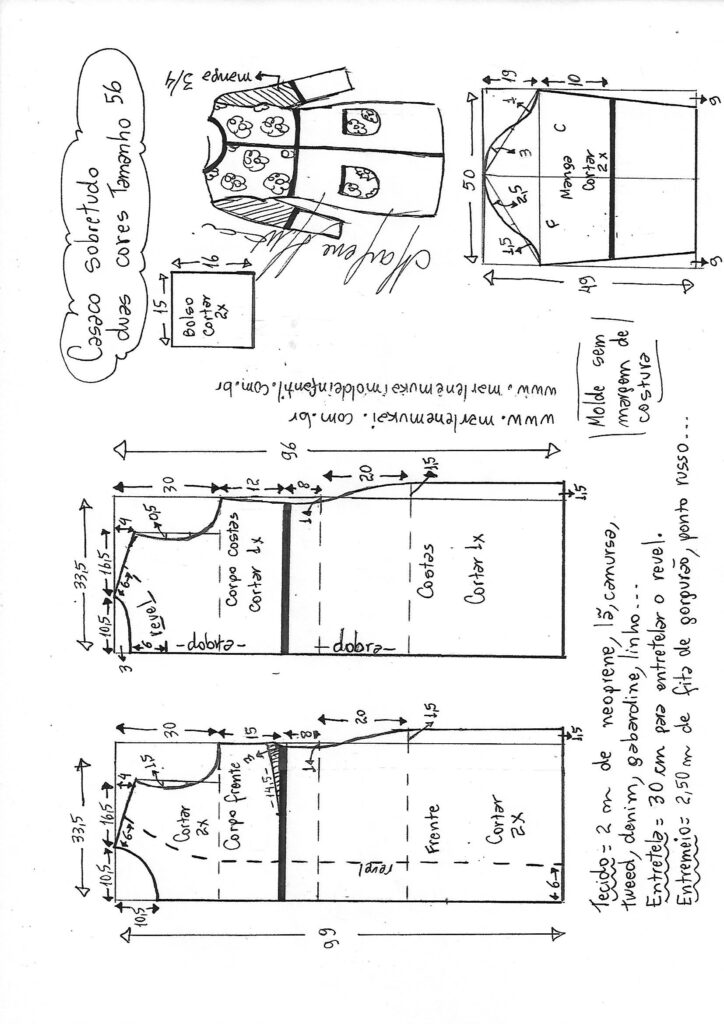 Casaco sobretudo
duas cores Tamanho 56
manga 3/4
15
16
Bolso
cortar
2x
Marlene Mukai
50
19
10
1
3
2,5
1,5
F
C
Manga
Cortar
2x
49
6
6
Molde sem
margem de
costura
www.marlenemukaimoldeinfantil.com.br
www.marlenemukai.com.br
96
33,5
10,5
16,5
4
30
12
8
20
1,5
1,5
3
6
6
revel
0,5
1
Corpo costas
Cortar 1x
-dobra-
-dobra-
Costas
Cortar 1x
33,5
10,5
16,5
4
30
15
8
20
1,5
1,5
10,5
6
1,5
3
-14,5-
1
Cortar
2x
Corpo frente
revel
Frente
Cortar
2x
6
99
Tecido = 2 m de neoprene, lã, camurça,
tweed, denim, gabardine, linho...
Entretela = 30 cm para entretelar o revel.
Entremeio = 2,50 m de fita de gorgurão, ponto russo...